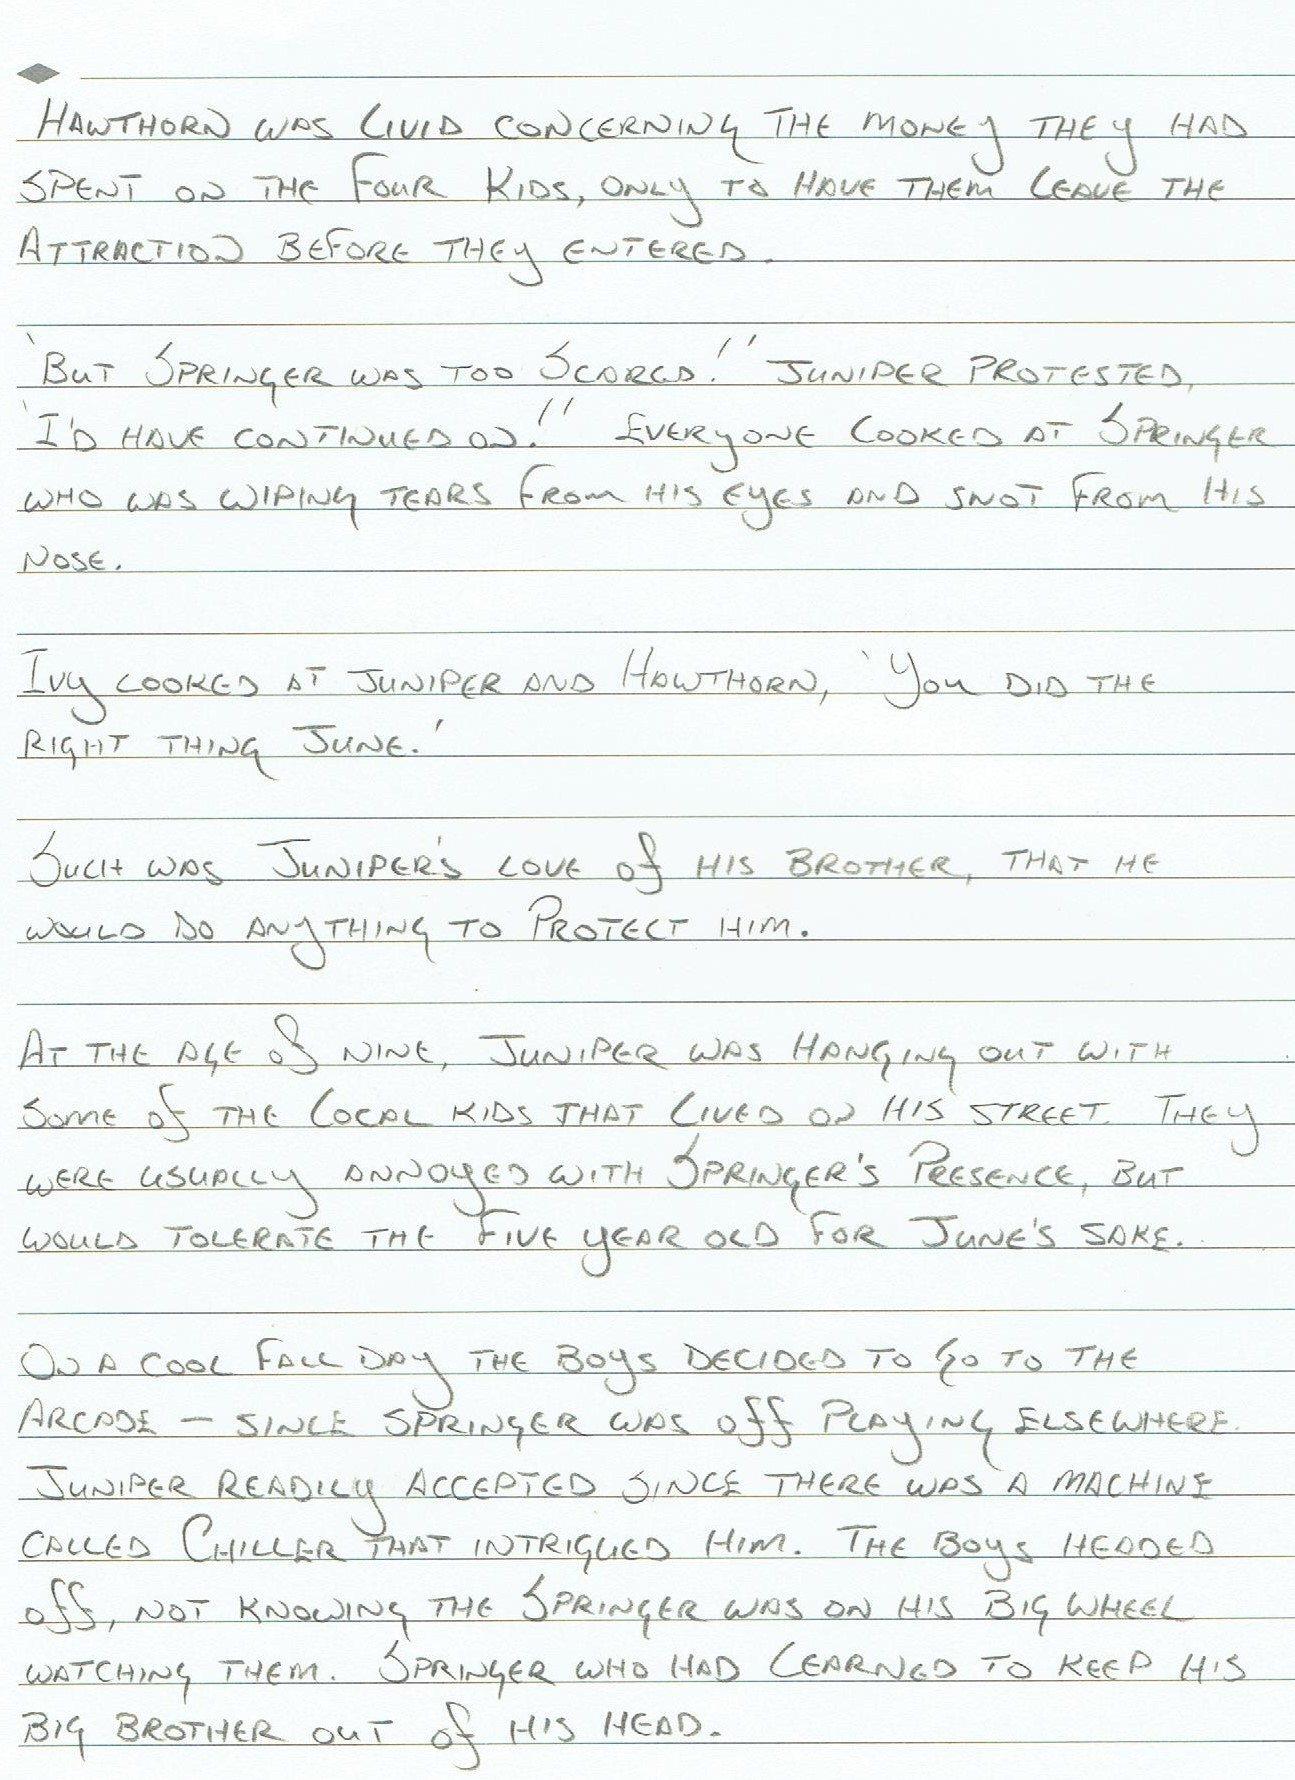 Hawthorn was livid concerning the money they had
spent on the four kids, only to have them leave the
attraction before they entered.
'But Springer was too scared!" Juniper protested,
'I'd have continued on!" Everyone looked at Springer
who was wiping tears from his eyes and snot from his
nose.
Ivy looked at Juniper and Hawthorn, 'You did the
right thing June.'
Such was Juniper's love of his brother, that he
would do anything to protect him.
At the age of nine, Juniper was hanging out with
some of the local kids that lived on his street. They
were usually annoyed with Springer's presence, but
would tolerate the five year old for June's sake.
On a cool fall day the boys decided to go to the
arcade – since Springer was off playing elsewhere.
Juniper readily accepted since there was a machine
called Chiller that intrigued him. The boys headed
off, not knowing the Springer was on his big wheel
watching them. Springer who had learned to keep his
big brother out of his head.